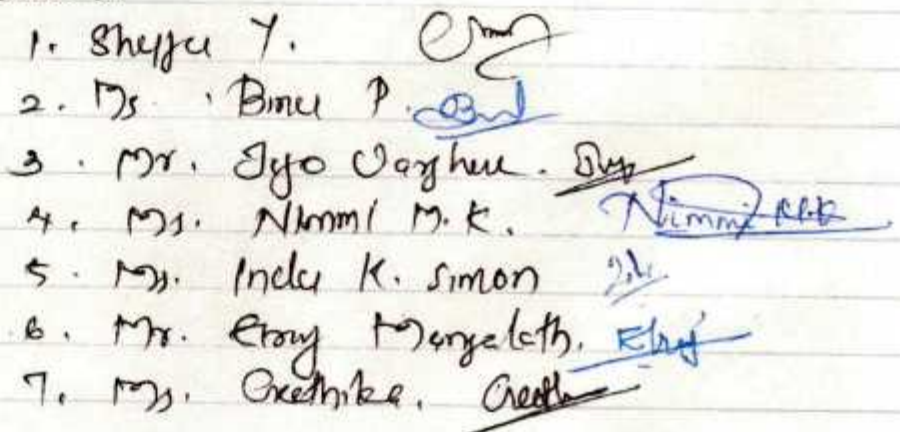 1. Shyju Y.
2. Ms. Binu P.
3. Mr. Jyo Varghese.
4. Ms. Nimmi M.K. Nimmi M.K
5. Ms. Indu K. Simon
6. Mr. Mangalath.
7. Ms. Greethika. Greeth